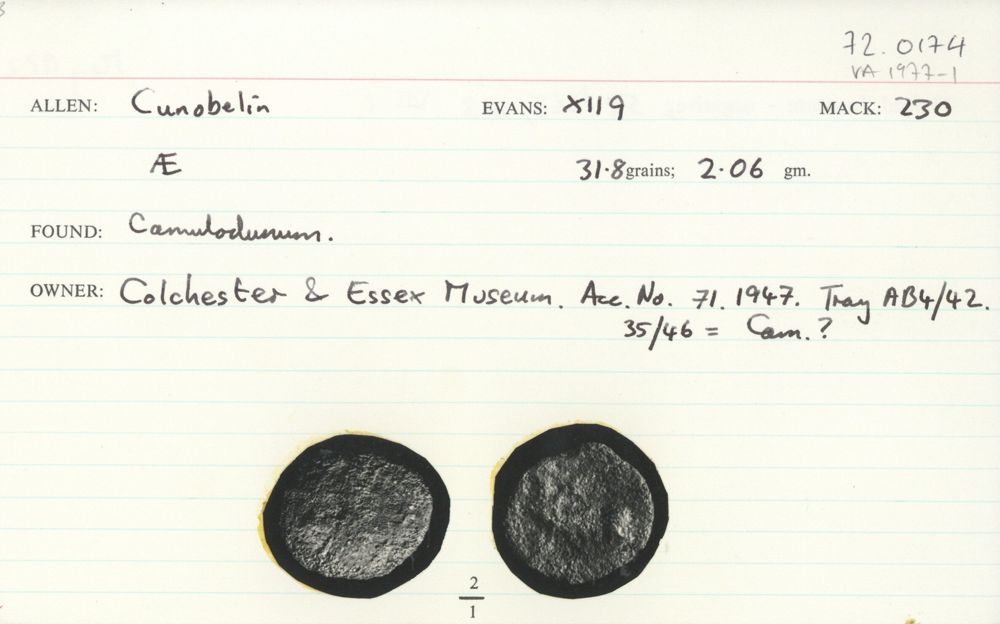 72.0174
VA 1977-1
ALLEN: Cunobelin EVANS: XII 9 MACK: 230
Æ 31·8 grains; 2·06 gm.
FOUND: Camulodunum.
OWNER: Colchester & Essex Museum. Acc. No. 71. 1947. Tray AB4/42.
35/46 = Cam.?
2
1